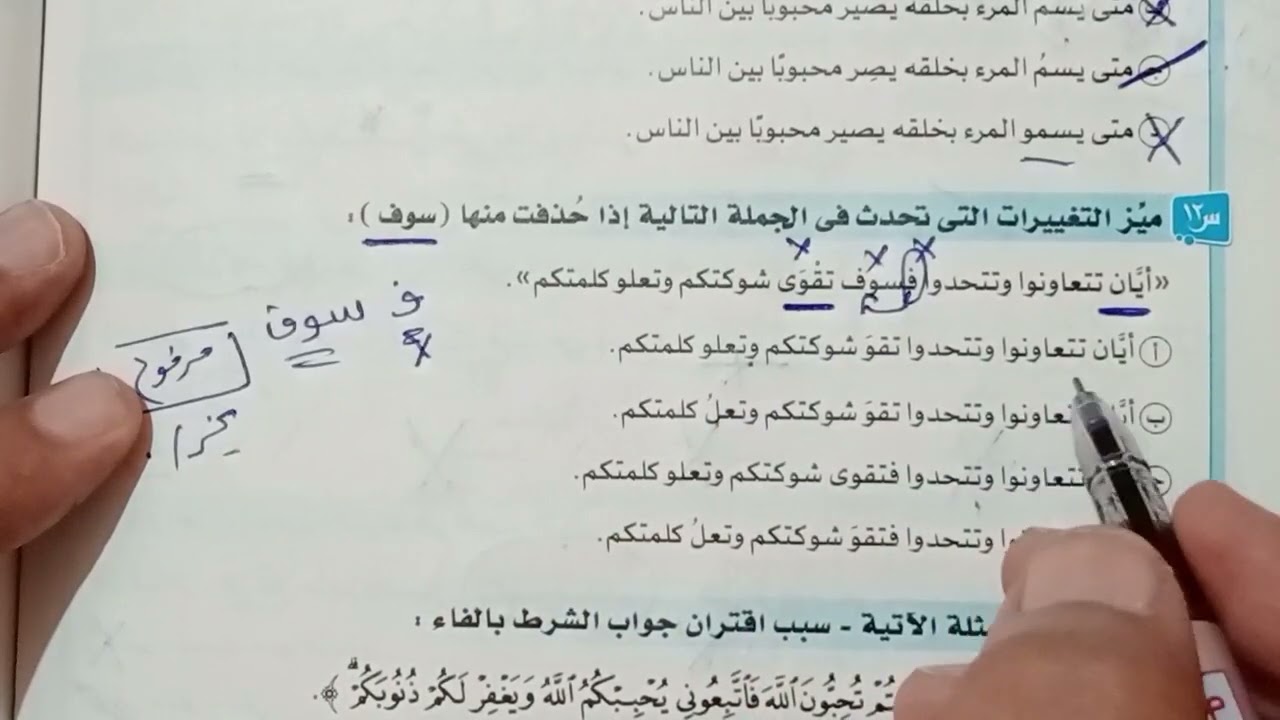 متى يسم المرء بخلقه يصير محبوبًا بين الناس.
متى يسمُ المرء بخلقه يصِر محبوبًا بين الناس.
د متى يسمو المرء بخلقه يصير محبوبًا بين الناس.
س١٢ ميِّز التغييرات التى تحدث فى الجملة التالية إذا حُذفت منها (سوف):
«أيَّان تتعاونوا وتتحدوا فسوف تقْوَى شوكتكم وتعلو كلمتكم».
أ أيَّان تتعاونوا وتتحدوا تقوَ شوكتكم وتعلو كلمتكم.
ب تعاونوا وتتحدوا تقوَ شوكتكم وتعلُ كلمتكم.
تتعاونوا وتتحدوا فتقوى شوكتكم وتعلو كلمتكم.
وتتحدوا فتقوَ شوكتكم وتعلُ كلمتكم.
ف سوف
مرفوع
يجزم
الآتية - سبب اقتران جواب الشرط بالفاء:
تُحِبُّونَ ٱللَّهَ فَٱتَّبِعُونِي يُحْبِبْكُمُ ٱللَّهُ وَيَغْفِرْ لَكُمْ ذُنُوبَكُمْۗ ﴾.